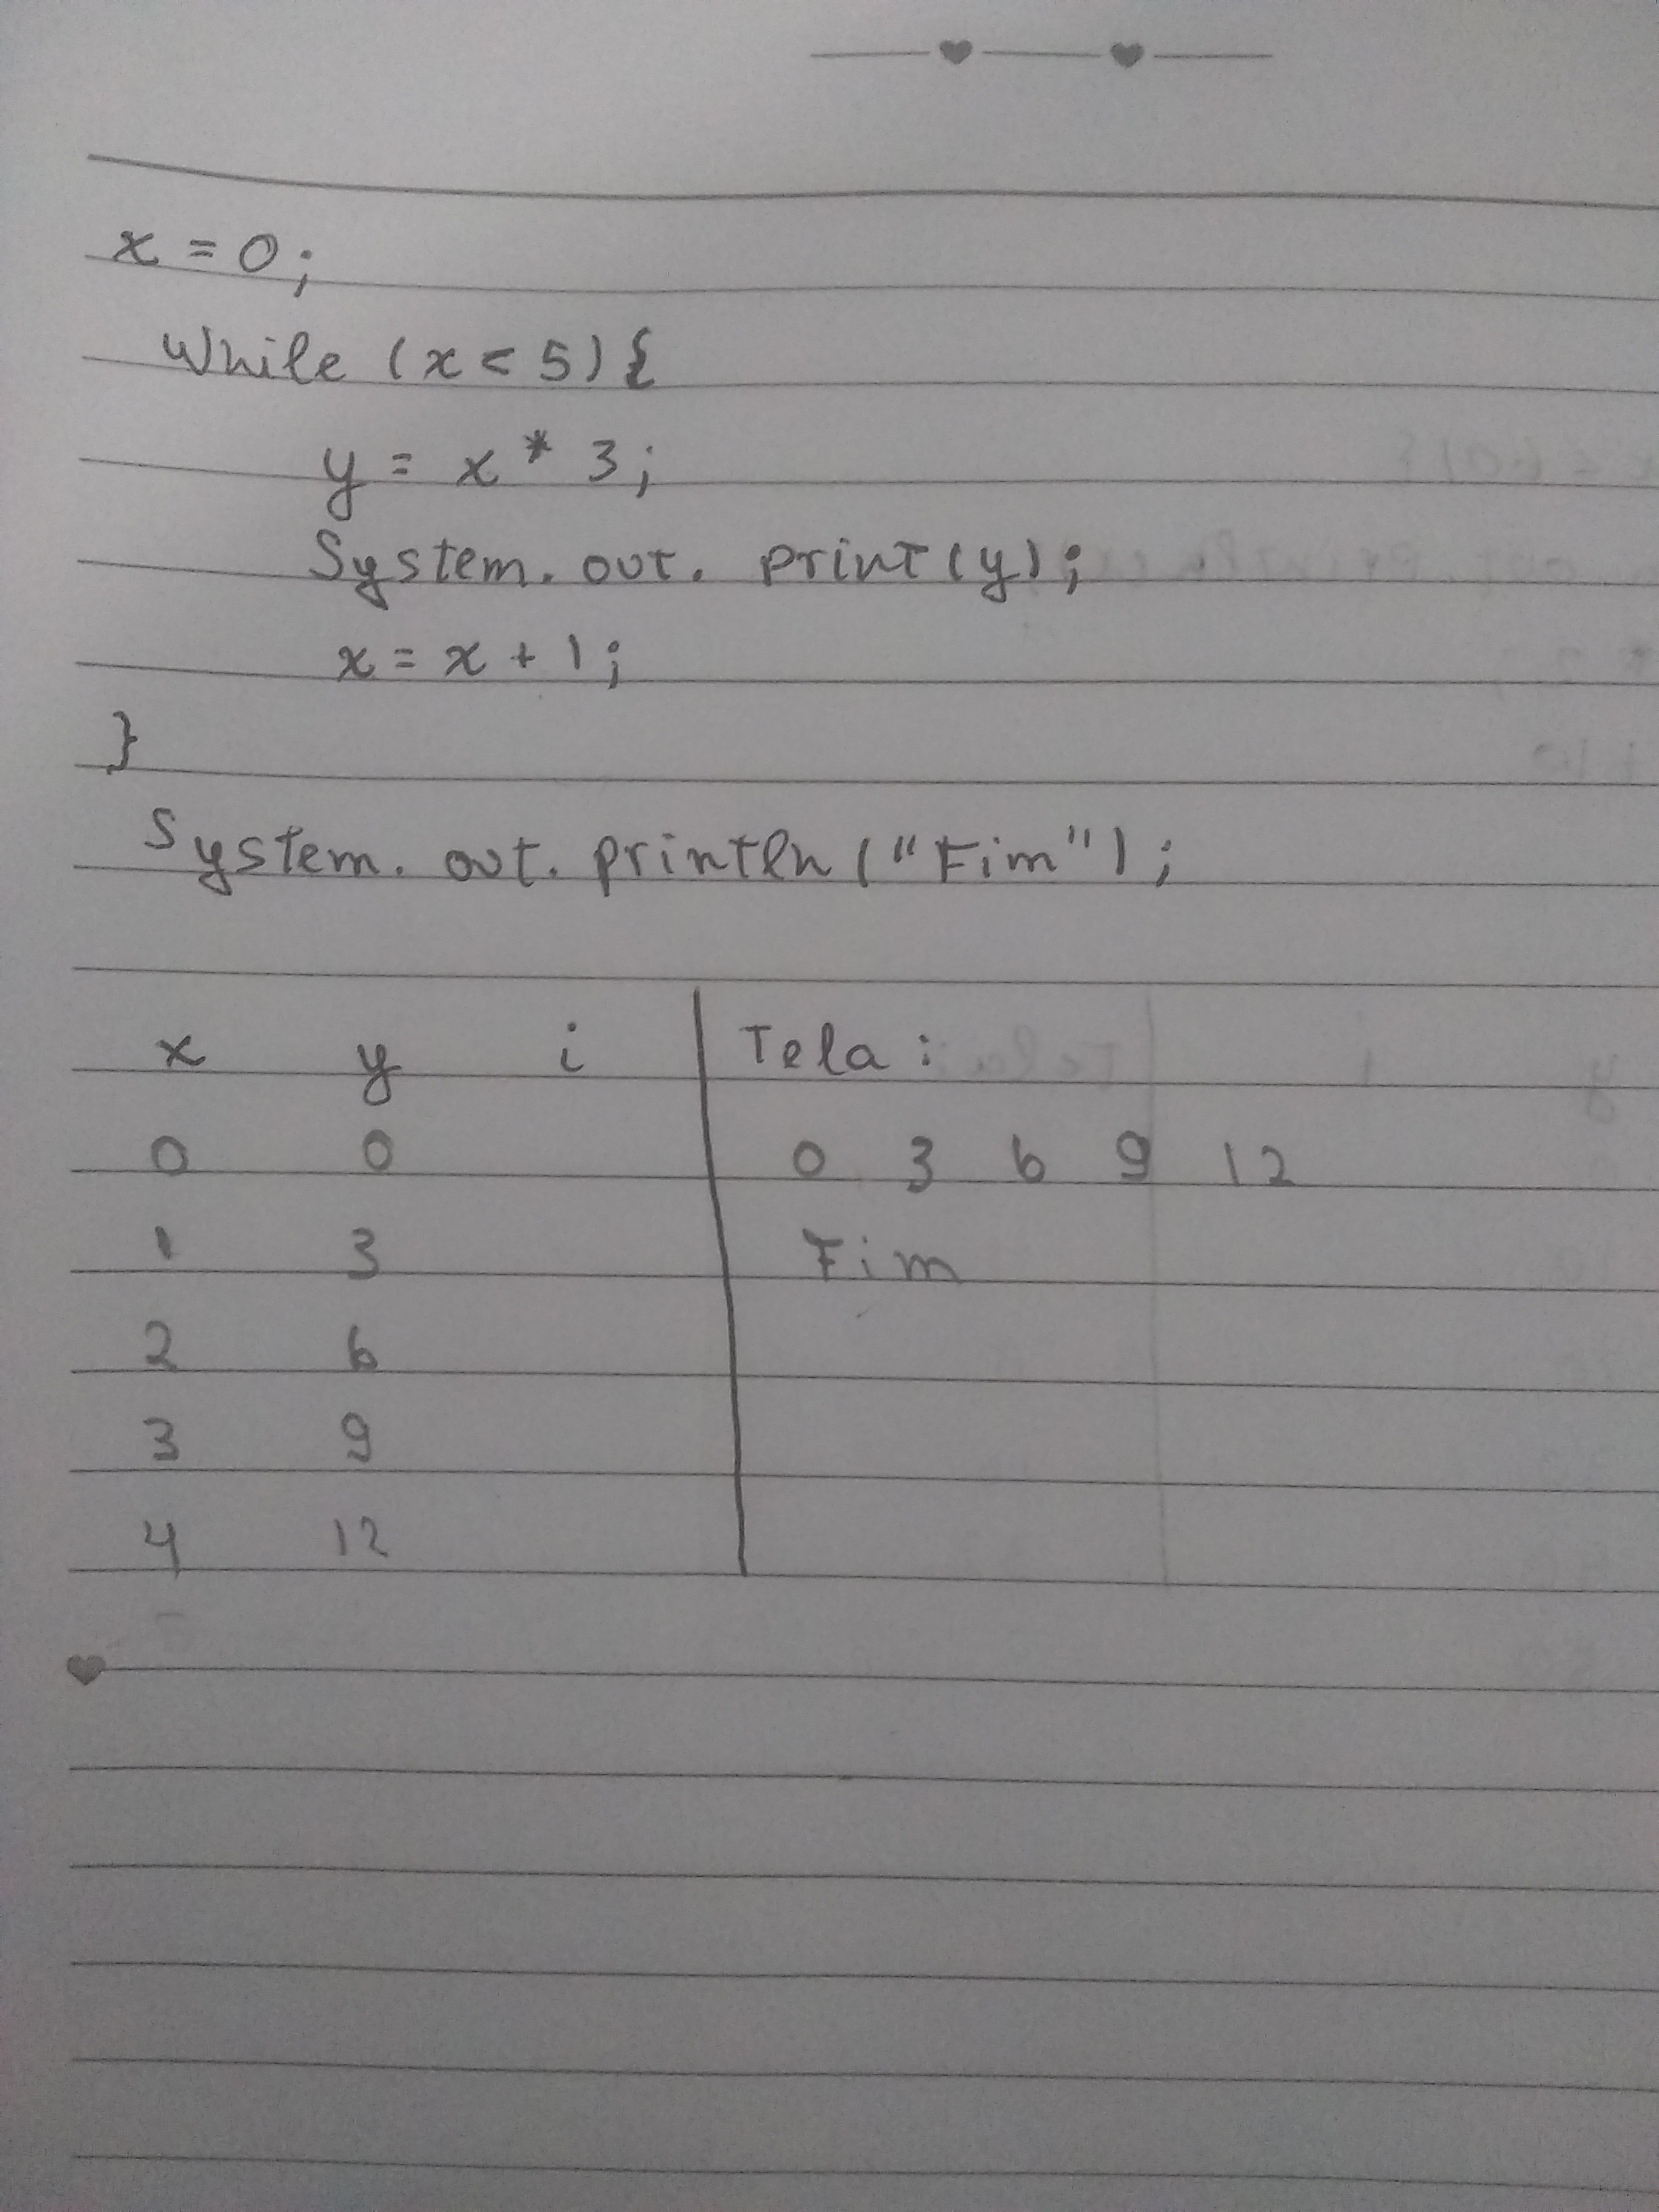 x = 0;
While (x < 5) {
y = x * 3;
System. out. print (y);
x = x + 1;
}
System. out. println ("Fim");
x y i Tela:
0 0 0 3 6 9 12
1 3 Fim
2 6
3 9
4 12